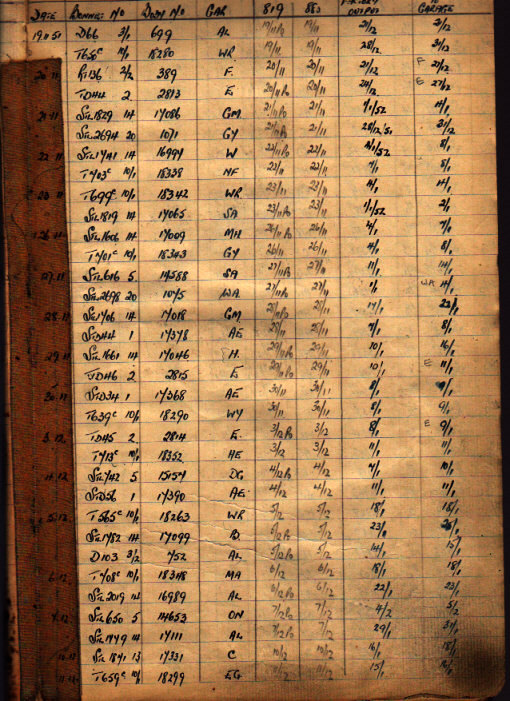 DATE BONNET NO BODY NO GAR 819 883 OUTPUT GARAGE
19 11 51 D66 3/1 699 AL 19/11 P/O 19/11 21/12 31/12
T650c 10/1 18280 WR 19/11 19/11 28/12 31/12
20 11 R1136 2/2 389 F 20/11 20/11 21/12 F 27/12
TD114 2 2813 E 20/11 P/O 20/11 E 27/12
21 11 STL1829 14 17086 GM 21/11 P/O 21/11 1/1/52 4/1
STL2694 20 1071 GY 21/11 28/12/51 31/12
22 11 STL1741 14 16994 W 22/11 P/O 22/11 8/1
T703c 10/1 18338 NF 22/11 22/11 8/1
T699c 10/1 18342 WR 23/11 23/11
STL1819 14 17065 SA 23/11 P/O 23/11 1/1/52 2/1
26 11 STL1606 14 17009 MH 26/11 P/O 26/11 7/1
T701c 10/1 18343 GY 26/11 26/11 4/1 8/1
27 11 STL616 5 14588 SA 27/11 P/O 27/11 11/1 14/1
STL2698 20 1075 WA 27/11 P/O 27/11 WA 14/1
28 11 STL1706 14 17018 GM 28/11 P/O 28/11 17/1 22/1
STD144 1 17378 AE 28/11 28/11 7/1 8/1
29 11 STL1661 14 17046 H 29/11 P/O 29/11 10/1 16/1
TD116 2 2815 E 29/11 P/O 29/11 10/1 E 11/1
30 11 STD134 1 17368 AE 30/11 30/11 8/1 9/1
T639c 10/1 18290 WY 30/11 30/11 8/1 9/1
3.12 TD115 2 2814 E 3/12 P/O 3/12 8/1 E 9/1
T713c 10/1 18352 AE 3/12 3/12 11/1 11/1
4.12 STL742 5 15154 DG 4/12 P/O 4/12 7/1 10/1
STD56 1 17390 AE 4/12 4/12 11/1 11/1
5.12 T565c 10/1 18263 WR 5/12 5/12 18/1 18/1
STL1782 14 17099 B 5/12 P/O 5/12 23/1
D103 3/2 752 AL 5/12 P/O 5/12 14/1 15/1
6.12 T708c 10/1 18348 MA 6/12 6/12 18/1 18/1
STL2019 14 16989 AL 6/12 P/O 6/12 22/1 23/1
7.12 STL650 5 14653 ON 7/12 P/O 7/12 4/2 5/2
STL1779 14 17111 AL 7/12 P/O 7/12 29/1 31/1
10.12 STL1871 13 17331 C 10/12 10/12 16/1 18/1
11.12 T659c 10/1 18299 EG 11/12 15/1 16/1